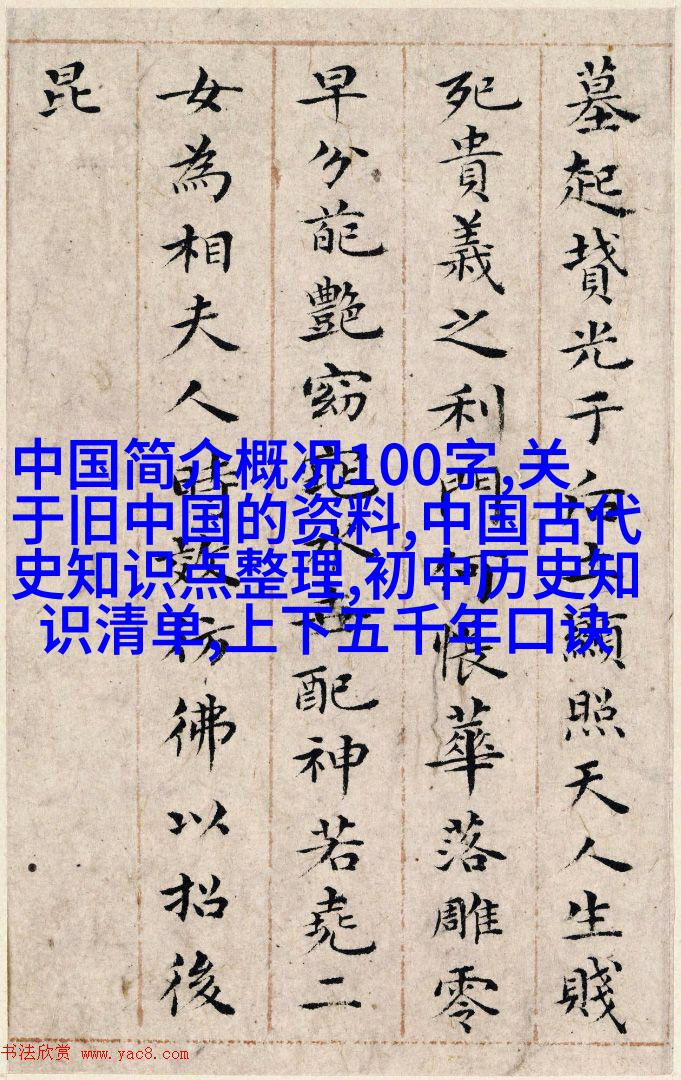 墓起墳光于后土顯照天人生賤
死貴義之利門何悵華落雕零
早分葩艷窈窕永世配神若堯二
女為相夫人時效彷彿以招後
昆
中国简介概况100字,关
于旧中国的资料,中国古代
史知识点整理,初中历史知
识清单,上下五千年口诀
书法欣赏 www.yac8.com